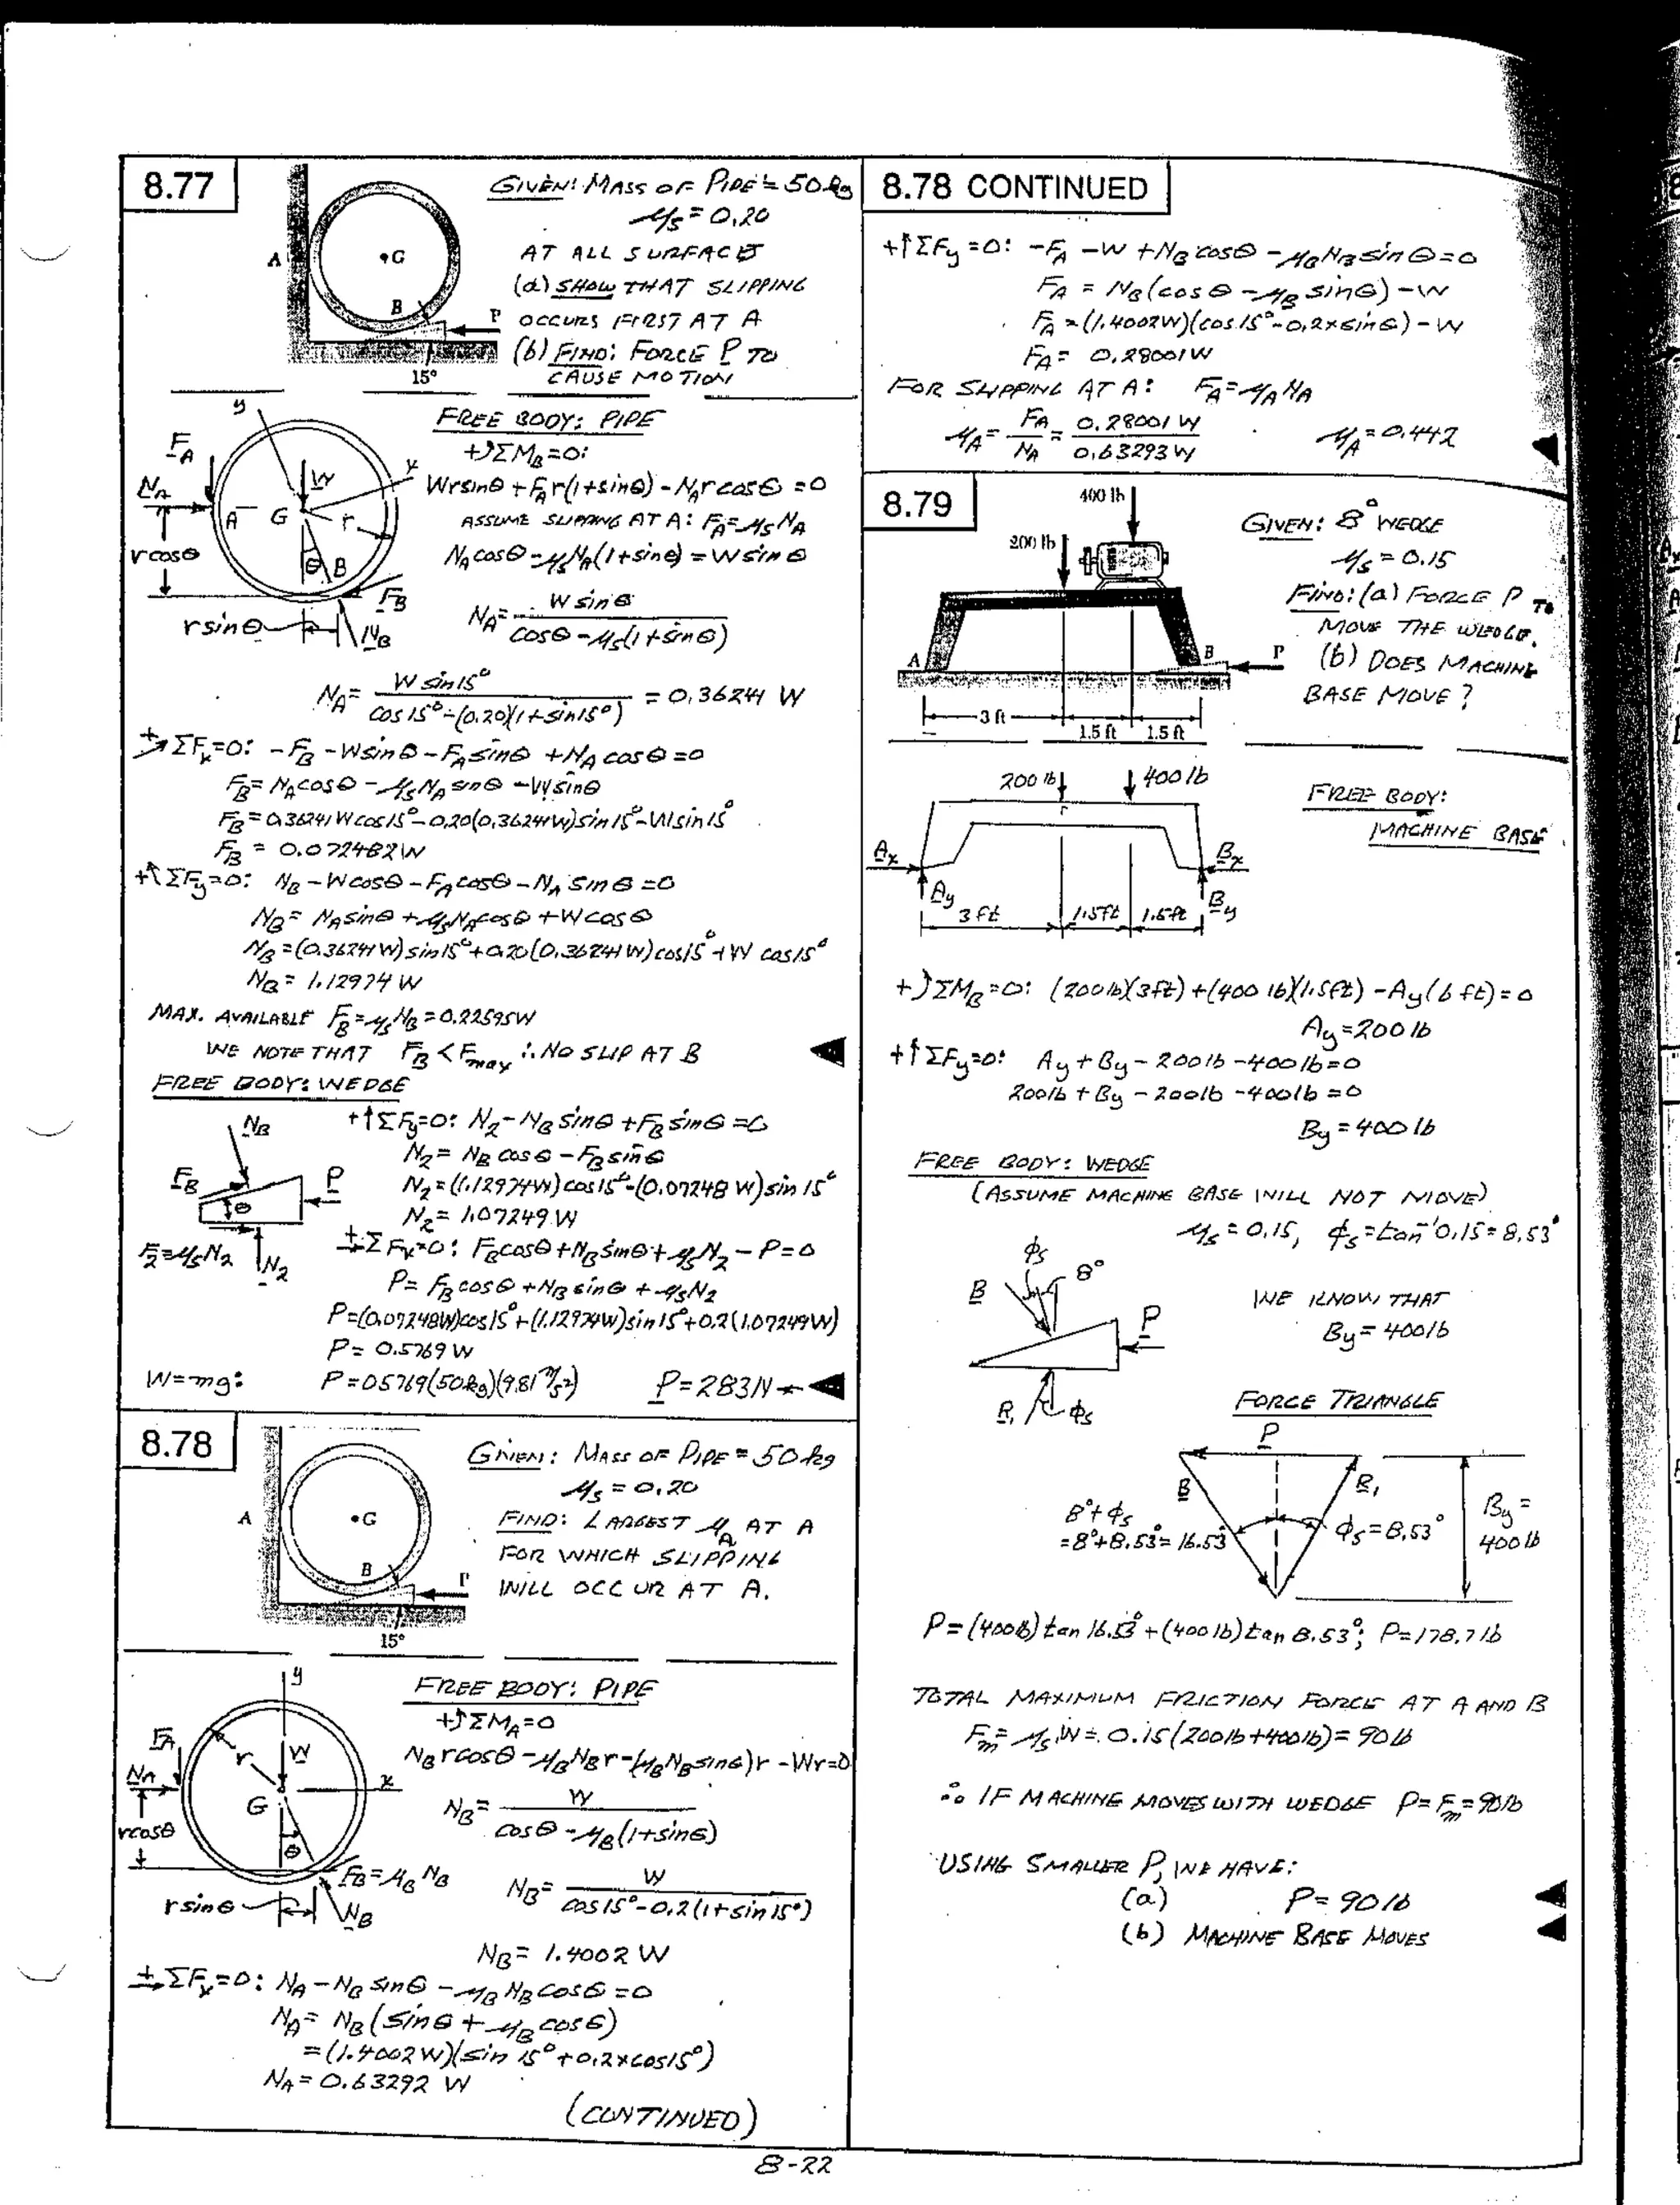 8.77
GIVEN: MASS OF PIPE = 50 kg
μs = 0.20
AT ALL SURFACES
(a) SHOW THAT SLIPPING
OCCURS FIRST AT A
(b) FIND: FORCE P TO
CAUSE MOTION
A
G
B
P
15°
FREE BODY: PIPE
+↺ΣM_B=0:
Wr sinθ + F_A r(1+sinθ) - N_A r cosθ = 0
ASSUME SLIPPING AT A: F_A=μs N_A
N_A cosθ - μs N_A(1+sinθ) = W sinθ
N_A = W sinθ / (cosθ - μs(1+sinθ))
y
F_A
N_A
W
x
A
G
r
r cosθ
θ
B
F_B
r sinθ
N_B
N_A = W sin15° / (cos15° - (0.20)(1+sin15°)) = 0.36241 W
+↗ΣF_x=0: -F_B - W sinθ - F_A sinθ + N_A cosθ = 0
F_B = N_A cosθ - μs N_A sinθ - W sinθ
F_B = 0.36241 W cos15° - 0.20(0.36241W) sin15° - W sin15°
F_B = 0.072482W
+↖ΣF_y=0: N_B - W cosθ - F_A cosθ - N_A sinθ = 0
N_B = N_A sinθ + μs N_A cosθ + W cosθ
N_B = (0.36241W) sin15° + 0.20(0.36241 W) cos15° + W cos15°
N_B = 1.12974 W
MAX. AVAILABLE F_B = μs N_B = 0.22595W
WE NOTE THAT F_B < F_max ∴ NO SLIP AT B
FREE BODY: WEDGE
+↑ΣF_y=0: N_2 - N_B sinθ + F_B sinθ = 0
N_2 = N_B cosθ - F_B sinθ
N_2 = (1.12974W) cos15° - (0.07248 W) sin15°
N_2 = 1.07249 W
N_B
F_B
θ
P
F_2 = μs N_2
N_2
+→ΣF_x=0: F_B cosθ + N_B sinθ + μs N_2 - P = 0
P = F_B cosθ + N_B sinθ + μs N_2
P = (0.07248W) cos15° + (1.12974W) sin15° + 0.2(1.07249W)
P = 0.5769 W
W = mg: P = 0.5769(50kg)(9.81 m/s²) P = 283N ←
8.78
GIVEN: MASS OF PIPE = 50 kg
μs = 0.20
FIND: LARGEST μ_A AT A
FOR WHICH SLIPPING
WILL OCCUR AT A.
A
G
B
P
15°
FREE BODY: PIPE
+↺ΣM_A=0
N_B r cosθ - μ_B N_B r - (μ_B N_B sinθ)r - Wr = 0
N_B = W / (cosθ - μ_B(1+sinθ))
N_B = W / (cos15° - 0.2(1+sin15°))
N_B = 1.4002 W
y
F_A
N_A
r
W
x
G
r cosθ
θ
F_B = μ_B N_B
r sinθ
N_B
+→ΣF_x=0: N_A - N_B sinθ - μ_B N_B cosθ = 0
N_A = N_B(sinθ + μ_B cosθ)
= (1.4002 W)(sin 15° + 0.2×cos15°)
N_A = 0.63292 W
(CONTINUED)
8.78 CONTINUED
+↑ΣF_y=0: -F_A - W + N_B cosθ - μ_B N_B sinθ = 0
F_A = N_B(cosθ - μ_B sinθ) - W
F_A = (1.4002W)(cos15° - 0.2×sinθ) - W
F_A = 0.28001W
FOR SLIPPING AT A: F_A = μ_A N_A
μ_A = F_A / N_A = 0.28001 W / 0.63293 W μ_A = 0.442
8.79
400 lb
200 lb
A
B
P
3 ft
1.5 ft 1.5 ft
GIVEN: 8° WEDGE
μs = 0.15
FIND: (a) FORCE P TO
MOVE THE WEDGE.
(b) DOES MACHINE
BASE MOVE ?
200 lb
400 lb
FREE BODY:
MACHINE BASE
A_x
A_y
B_x
B_y
3 ft
1.5 ft
1.5 ft
+↺ΣM_B=0: (200lb)(3ft) + (400 lb)(1.5ft) - A_y(6 ft) = 0
A_y = 200 lb
+↑ΣF_y=0: A_y + B_y - 200 lb - 400 lb = 0
200lb + B_y - 200lb - 400lb = 0
B_y = 400 lb
FREE BODY: WEDGE
(ASSUME MACHINE BASE WILL NOT MOVE)
μs = 0.15, φs = tan⁻¹0.15 = 8.53°
φs
8°
B
P
R_1
φs
WE KNOW THAT
B_y = 400 lb
FORCE TRIANGLE
P
B
R_1
8°+φs
= 8°+8.53° = 16.53°
φs = 8.53°
B_y =
400 lb
P = (400lb) tan 16.53° + (400 lb) tan 8.53°; P = 178.7 lb
TOTAL MAXIMUM FRICTION FORCE AT A AND B
F_m = μs W = 0.15(200lb+400lb) = 90 lb
∴ IF MACHINE MOVES WITH WEDGE P = F_m = 90 lb
USING SMALLER P, WE HAVE:
(a) P = 90 lb
(b) MACHINE BASE MOVES
8-22